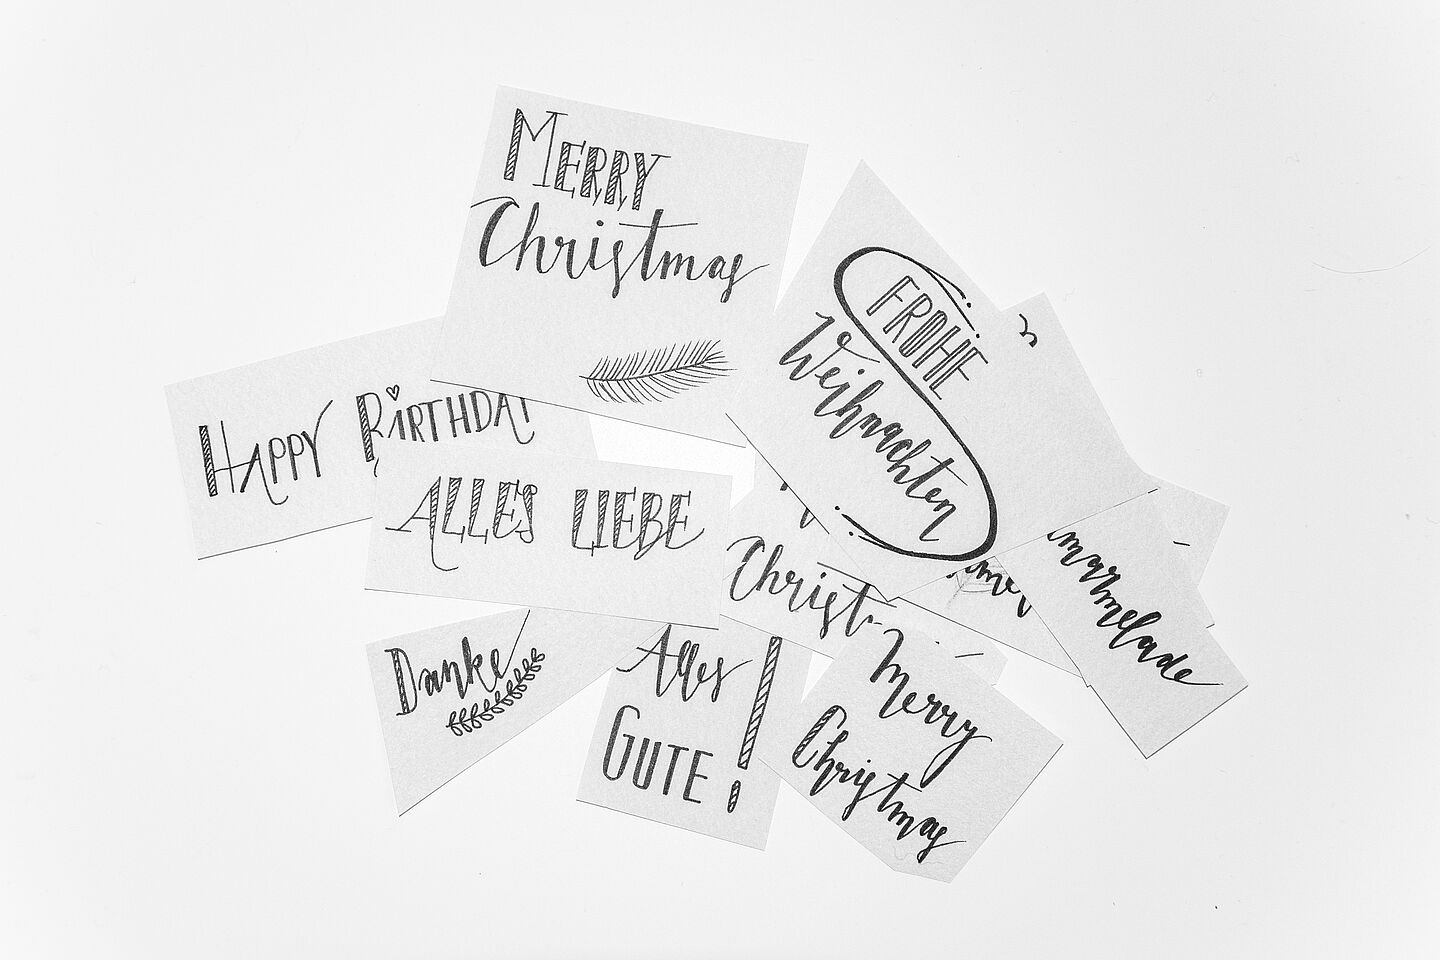 MERRY
Christmas
FROHE
Weihnachten
HAPPY BIRTHDAY
ALLES LIEBE
Christ
marmelade
Danke
Alles
GUTE!
Merry
Christmas